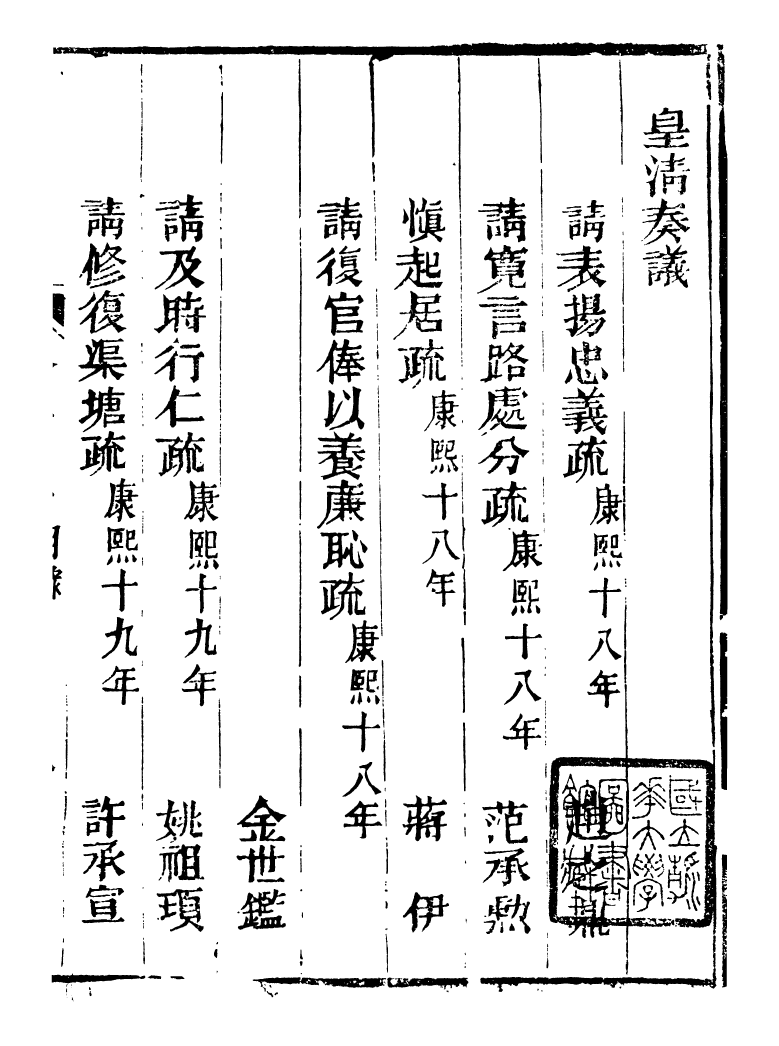 皇清奏議
請表揚忠義疏 康熙十八年 趙 鼎
請寬言路處分疏 康熙十八年 范承勲
慎起居疏 康熙十八年 蔣伊
請復官俸以養廉恥疏 康熙十八年
金世鑑
請及時行仁疏 康熙十九年 姚祖頊
請修復渠塘疏 康熙十九年 許承宣
目錄
國立清華大學圖書館藏